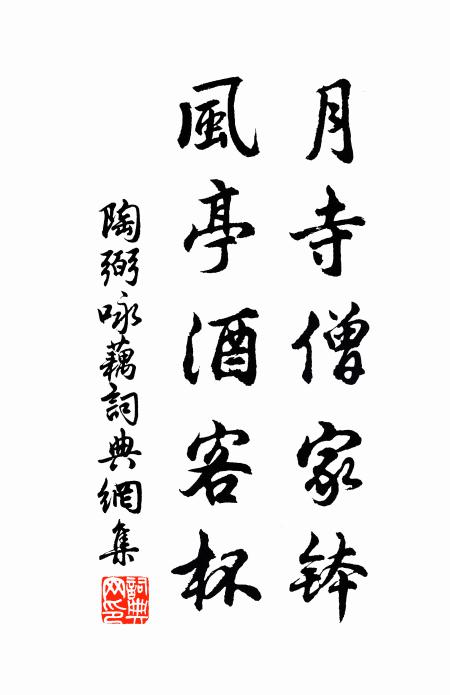 月寺僧家鉢
風亭酒客杯
陶弼咏藕詞典網集
詞典網印